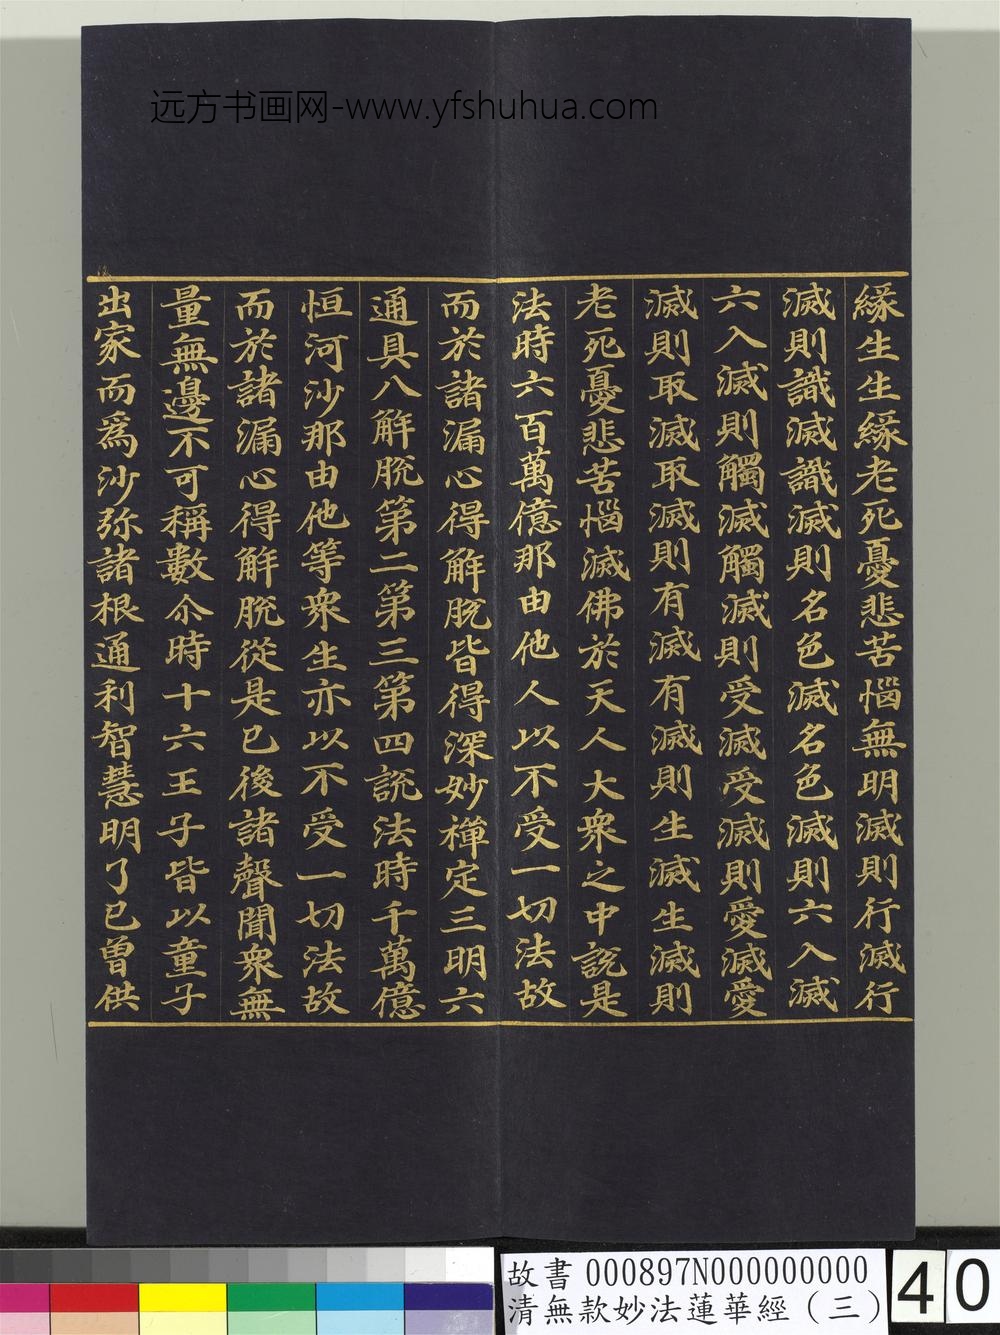 远方书画网-www.yfshuhua.com
緣生生緣老死憂悲苦惱無明滅則行滅行
滅則識滅識滅則名色滅名色滅則六入滅
六入滅則觸滅觸滅則受滅受滅則愛滅愛
滅則取滅取滅則有滅有滅則生滅生滅則
老死憂悲苦惱滅佛於天人大眾之中說是
法時六百萬億那由他人以不受一切法故
而於諸漏心得解脫皆得深妙禪定三明六
通具八解脫第二第三第四說法時千萬億
恒河沙那由他等眾生亦以不受一切法故
而於諸漏心得解脫從是已後諸聲聞眾無
量無邊不可稱數尒時十六王子皆以童子
出家而為沙弥諸根通利智慧明了已曾供
故書 000897N000000000 40
清無款妙法蓮華經（三）